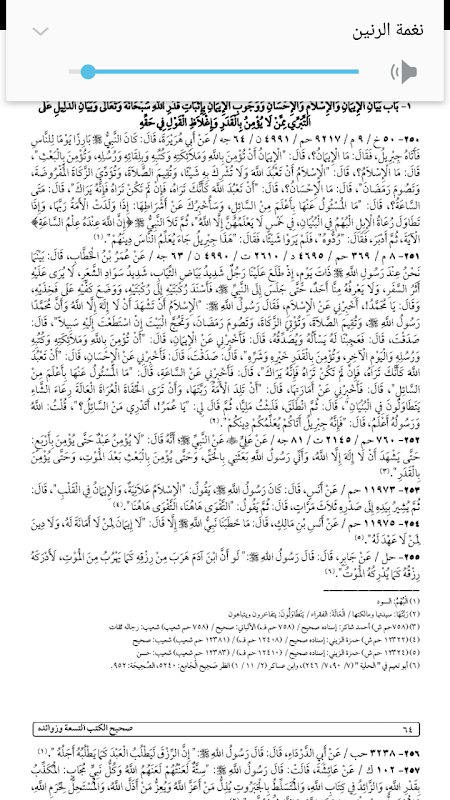 نغمة الرنين
١- بَاب بَيَانِ الْإِيمَانِ وَالْإِسْلَامِ وَالْإِحْسَانِ وَوُجُوبِ الْإِيمَانِ بِإِثْبَاتِ قَدَرِ اللهِ سُبْحَانَهُ وَتَعَالَى وَبَيَانِ الدَّلِيلِ عَلَى
التَّبَرِّي مِمَّنْ لَا يُؤْمِنُ بِالْقَدَرِ وَإِغْلَاظِ الْقَوْلِ فِي حَقِّهِ
٢٥٠- ٥٠ خ / ٩ م / ٩٢١٧ حم / ٤٩٩١ ن / ٦٤ جه / عَنْ أَبِي هُرَيْرَةَ، قَالَ: كَانَ النَّبِيُّ ﷺ بَارِزًا يَوْمًا لِلنَّاسِ
فَأَتَاهُ جِبْرِيلُ، فَقَالَ: مَا الْإِيمَانُ؟، قَالَ: "الْإِيمَانُ أَنْ تُؤْمِنَ بِاللهِ وَمَلَائِكَتِهِ وَكُتُبِهِ وَبِلِقَائِهِ وَرُسُلِهِ، وَتُؤْمِنَ بِالْبَعْثِ"،
قَالَ: مَا الْإِسْلَامُ؟، قَالَ: "الْإِسْلَامُ أَنْ تَعْبُدَ اللهَ وَلَا تُشْرِكَ بِهِ شَيْئًا، وَتُقِيمَ الصَّلَاةَ، وَتُؤَدِّيَ الزَّكَاةَ الْمَفْرُوضَةَ،
وَتَصُومَ رَمَضَانَ"، قَالَ: مَا الْإِحْسَانُ؟، قَالَ: "أَنْ تَعْبُدَ اللهَ كَأَنَّكَ تَرَاهُ، فَإِنْ لَمْ تَكُنْ تَرَاهُ فَإِنَّهُ يَرَاكَ"، قَالَ: مَتَى
السَّاعَةُ؟، قَالَ: "مَا الْمَسْئُولُ عَنْهَا بِأَعْلَمَ مِنْ السَّائِلِ، وَسَأُخْبِرُكَ عَنْ أَشْرَاطِهَا: إِذَا وَلَدَتْ الْأَمَةُ رَبَّهَا، وَإِذَا
تَطَاوَلَ رُعَاةُ الْإِبِلِ الْبُهْمُ فِي الْبُنْيَانِ، فِي خَمْسٍ لَا يَعْلَمُهُنَّ إِلَّا اللهُ"، ثُمَّ تَلَا النَّبِيُّ ﷺ ﴿إِنَّ اللهَ عِنْدَهُ عِلْمُ السَّاعَةِ﴾
الْآيَةَ، ثُمَّ أَدْبَرَ، فَقَالَ: "رُدُّوهُ"، فَلَمْ يَرَوْا شَيْئًا، فَقَالَ: "هَذَا جِبْرِيلُ جَاءَ يُعَلِّمُ النَّاسَ دِينَهُمْ".(١)
٢٥١- ٨ م / ٣٦٩ حم / ٤٦٩٥ د / ٢٦١٠ ت / ٤٩٩٠ ن / ٦٣ جه / عَنْ عُمَرَ بْنِ الْخَطَّابِ، قَالَ: بَيْنَمَا
نَحْنُ عِنْدَ رَسُولِ اللهِ ﷺ ذَاتَ يَوْمٍ، إِذْ طَلَعَ عَلَيْنَا رَجُلٌ شَدِيدُ بَيَاضِ الثِّيَابِ، شَدِيدُ سَوَادِ الشَّعَرِ، لَا يُرَى عَلَيْهِ
أَثَرُ السَّفَرِ، وَلَا يَعْرِفُهُ مِنَّا أَحَدٌ، حَتَّى جَلَسَ إِلَى النَّبِيِّ ﷺ، فَأَسْنَدَ رُكْبَتَيْهِ إِلَى رُكْبَتَيْهِ، وَوَضَعَ كَفَّيْهِ عَلَى فَخِذَيْهِ،
وَقَالَ: يَا مُحَمَّدُ!، أَخْبِرْنِي عَنْ الْإِسْلَامِ، فَقَالَ رَسُولُ اللهِ ﷺ: "الْإِسْلَامُ أَنْ تَشْهَدَ أَنْ لَا إِلَهَ إِلَّا اللهُ وَأَنَّ مُحَمَّدًا
رَسُولُ اللهِ ﷺ، وَتُقِيمَ الصَّلَاةَ، وَتُؤْتِيَ الزَّكَاةَ، وَتَصُومَ رَمَضَانَ، وَتَحُجَّ الْبَيْتَ إِنْ اسْتَطَعْتَ إِلَيْهِ سَبِيلًا"، قَالَ:
صَدَقْتَ، قَالَ: فَعَجِبْنَا لَهُ يَسْأَلُهُ وَيُصَدِّقُهُ، قَالَ: فَأَخْبِرْنِي عَنْ الْإِيمَانِ، قَالَ: "أَنْ تُؤْمِنَ بِاللهِ وَمَلَائِكَتِهِ وَكُتُبِهِ
وَرُسُلِهِ وَالْيَوْمِ الْآخِرِ، وَتُؤْمِنَ بِالْقَدَرِ خَيْرِهِ وَشَرِّهِ"، قَالَ: صَدَقْتَ، قَالَ: فَأَخْبِرْنِي عَنْ الْإِحْسَانِ، قَالَ: "أَنْ تَعْبُدَ
اللهَ كَأَنَّكَ تَرَاهُ، فَإِنْ لَمْ تَكُنْ تَرَاهُ فَإِنَّهُ يَرَاكَ"، قَالَ: فَأَخْبِرْنِي عَنْ السَّاعَةِ، قَالَ: "مَا الْمَسْئُولُ عَنْهَا بِأَعْلَمَ مِنْ
السَّائِلِ"، قَالَ: فَأَخْبِرْنِي عَنْ أَمَارَتِهَا، قَالَ: "أَنْ تَلِدَ الْأَمَةُ رَبَّتَهَا، وَأَنْ تَرَى الْحُفَاةَ الْعُرَاةَ الْعَالَةَ رِعَاءَ الشَّاءِ
يَتَطَاوَلُونَ فِي الْبُنْيَانِ"، قَالَ: ثُمَّ انْطَلَقَ، فَلَبِثْتُ مَلِيًّا، ثُمَّ قَالَ لِي: "يَا عُمَرُ!، أَتَدْرِي مَنْ السَّائِلُ؟"، قُلْتُ: اللهُ
وَرَسُولُهُ أَعْلَمُ، قَالَ: "فَإِنَّهُ جِبْرِيلُ أَتَاكُمْ يُعَلِّمُكُمْ دِينَكُمْ".(٢)
٢٥٢- ٧٦٠ حم / ٢١٤٥ ت / ٨١ جه / عَنْ عَلِيٍّ ﷺ عَنْ النَّبِيِّ ﷺ؛ أَنَّهُ قَالَ: "لَا يُؤْمِنُ عَبْدٌ حَتَّى يُؤْمِنَ بِأَرْبَعٍ:
حَتَّى يَشْهَدَ أَنْ لَا إِلَهَ إِلَّا اللهُ، وَأَنِّي رَسُولُ اللهِ ﷺ بَعَثَنِي بِالْحَقِّ، وَحَتَّى يُؤْمِنَ بِالْبَعْثِ بَعْدَ الْمَوْتِ، وَحَتَّى يُؤْمِنَ
بِالْقَدَرِ".(٣)
٢٥٣- ١١٩٧٣ حم / عَنْ أَنَسٍ، قَالَ: كَانَ رَسُولُ اللهِ ﷺ، يَقُولُ: "الْإِسْلَامُ عَلَانِيَةٌ، وَالْإِيمَانُ فِي الْقَلْبِ"، قَالَ:
ثُمَّ يُشِيرُ بِيَدِهِ إِلَى صَدْرِهِ ثَلَاثَ مَرَّاتٍ، قَالَ: ثُمَّ يَقُولُ: "التَّقْوَى هَاهُنَا، التَّقْوَى هَاهُنَا".(٤)
٢٥٤- ١١٩٧٥ حم / عَنْ أَنَسِ بْنِ مَالِكٍ، قَالَ: مَا خَطَبَنَا نَبِيُّ اللهِ ﷺ إِلَّا قَالَ: "لَا إِيمَانَ لِمَنْ لَا أَمَانَةَ لَهُ، وَلَا دِينَ
لِمَنْ لَا عَهْدَ لَهُ".(٥)
٢٥٥- حل / عَنْ جَابِرٍ، قَالَ: قَالَ رَسُولُ اللهِ ﷺ: "لَو أَنَّ ابْنَ آدَمَ هَرَبَ مِنْ رِزْقِهِ كَمَا يَهْرُبُ مِنَ الْمَوْتِ، لَأَدْرَكَهُ
رِزْقُهُ كَمَا يُدْرِكُهُ الْمَوْتُ".(٦)
(١) الْبُهْمُ: السود
(٢) رَبَّتَهَا: سيدتها ومالكتها / الْعَالَةَ: الفقراء / يَتَطَاوَلُونَ: يتفاخرون ويتباهون
(٣) (٧٥٨ حم ش) أحمد شاكر: إسناده صحيح / (٧٥٨ حم ف) الألباني: صحيح / (٧٥٨ حم شعيب) شعيب: رجاله ثقات
(٤) (١٢٣٢٢ حم ش) حمزة الزيني: إسناده صحيح / (١٢٤٠٨ حم ف) / (١٢٣٨١ حم شعيب) شعيب: صحيح
(٥) (١٢٣٢٤ حم ش) حمزة الزيني: إسناده صحيح / (١٢٤١٠ حم ف) / (١٢٣٨٣ حم شعيب) شعيب: حسن
(٦) أبو نعيم في " الحلية " (٧/ ٩٠، ٧/ ٢٤٦)، وابن عساكر (٢/ ١١ / ١) انظر صَحِيح الْجَامِع: ٥٢٤٠، الصَّحِيحَة: ٩٥٢.
٦٤ صحيح الكتب التسعة وزوائده
٢٥٦- ٣٢٣٨ حب / عَنْ أَبِي الدَّرْدَاءِ، قَالَ: قَالَ رَسُولُ اللهِ ﷺ: " إِنَّ الرِّزْقَ لَيَطْلُبُ الْعَبْدَ كَمَا يَطْلُبُهُ أَجَلُهُ ".(١)
٢٥٧- ١٠٢ ك / عَنْ عَائِشَةَ، قَالَتْ: قَالَ رَسُولُ اللهِ ﷺ: "سِتَّةٌ لَعَنْتُهُمْ لَعَنَهُمُ اللهُ وَكُلُّ نَبِيٍّ مُجَابٍ: الْمُكَذِّبُ
بِقَدَرِ اللهِ، وَالزَّائِدُ فِي كِتَابِ اللهِ، وَالْمُتَسَلِّطُ بِالْجَبَرُوتِ يُذِلُّ مَنْ أَعَزَّ اللهُ وَيُعِزُّ مَنْ أَذَلَّ اللهُ، وَالْمُسْتَحِلُّ لِحَرَمِ اللهِ،